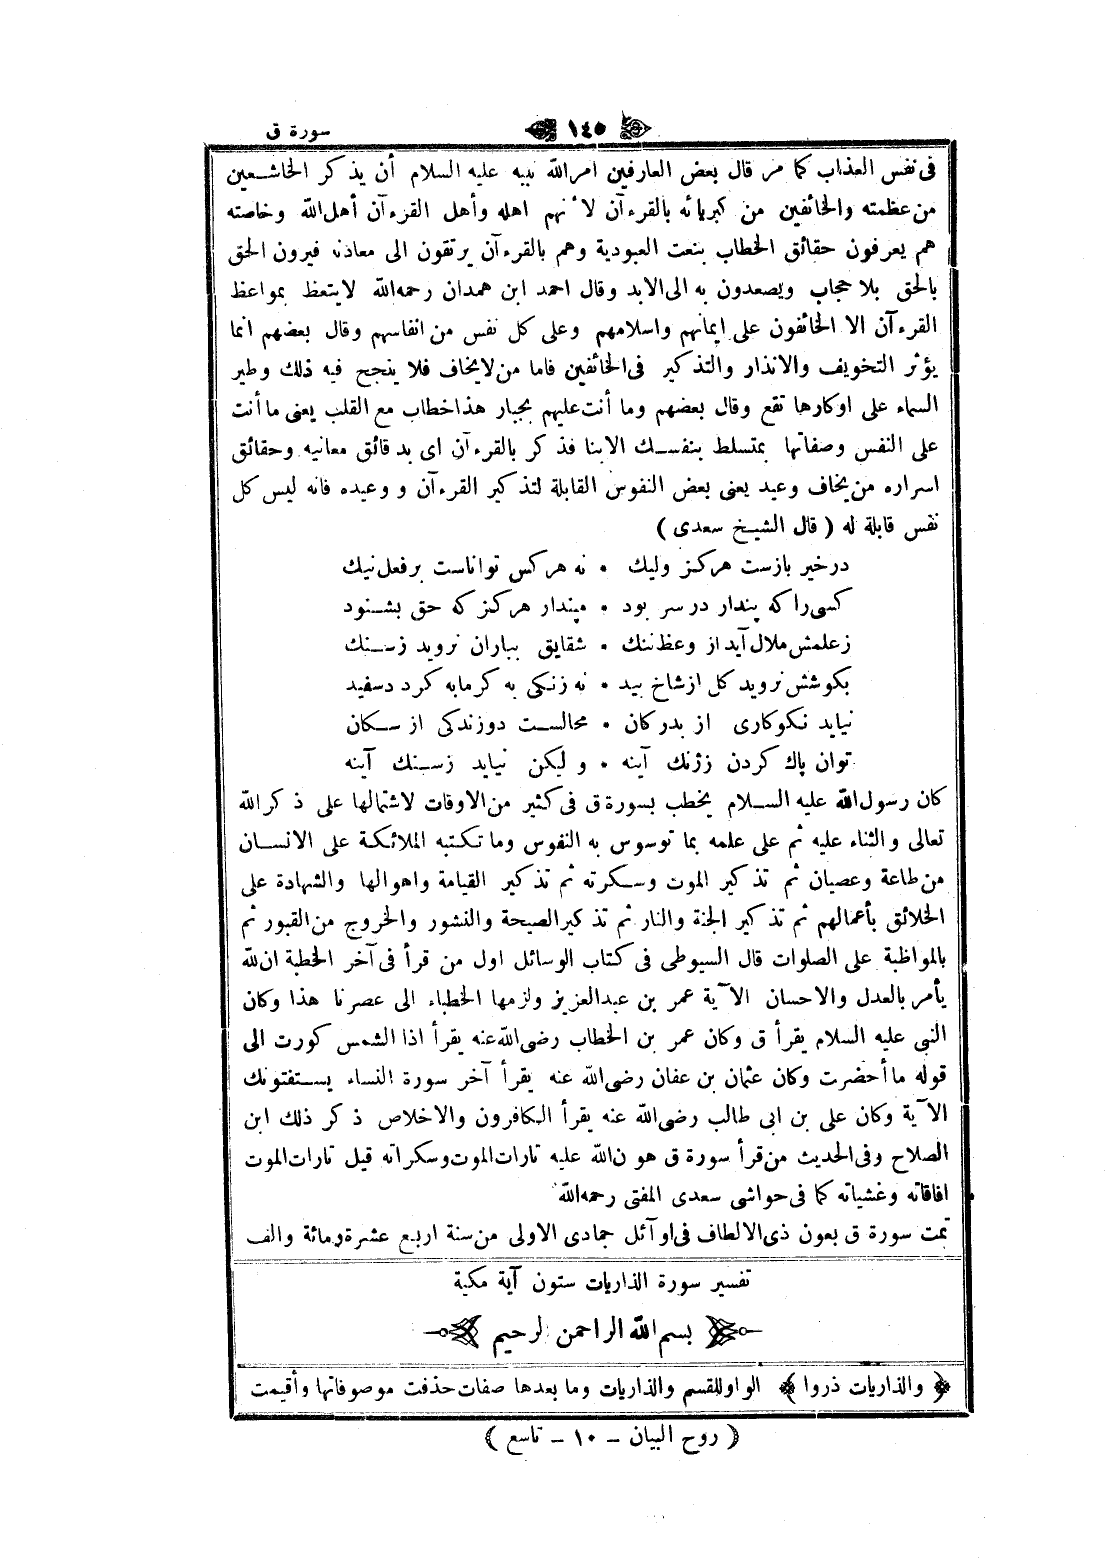 سورة ق
١٤٥
فى نفس العذاب كما مر قال بعض العارفين امر الله نبيه عليه السلام أن يذكر الخاشعين
من عظمته والخائفين من كبريائه بالقرءآن لأنهم اهله وأهل القرءآن أهل الله وخاصته
هم يعرفون حقائق الخطاب بنعت العبودية وهم بالقرءآن يرتقون الى معادنه فيرون الحق
بالحق بلا حجاب ويصعدون به الى الابد وقال احمد ابن همدان رحمه الله لايتعظ بمواعظ
القرءآن الا الخائفون على ايمانهم واسلامهم وعلى كل نفس من انفاسهم وقال بعضهم انما
يؤثر التخويف والانذار والتذكير فى الخائفين فاما من لايخاف فلا ينجح فيه ذلك وطير
السماء على اوكارها تقع وقال بعضهم وما أنت عليهم بجبار هذا خطاب مع القلب يعنى ما أنت
على النفس وصفاتها بمتسلط بنفسك الابنا فذكر بالقرءآن اى بدقائق معانيه وحقائق
اسراره من يخاف وعيد يعنى بعض النفوس القابلة لتذكير القرءآن و وعيده فانه ليس كل
نفس قابلة له ( قال الشيخ سعدى )
درخير بازست هركز وليك • نه هركس تواناست برفعل نيك
كسى راكه پندار در سر بود • مپندار هركز كه حق بشنود
زعلمش ملال آيد از وعظ ننك • شقايق بباران نرويد زسنك
بكوشش نرويد كل ازشاخ بيد • نه زنكى به كرمابه كردد سفيد
نيايد نكوكارى از بدركان • محالست دوزندكى از سكان
توان پاك كردن زژنك آينه • و ليكن نيايد زسنك آينه
كان رسول الله عليه السلام يخطب بسورة ق فى كثير من الاوقات لاشتمالها على ذكر الله
تعالى والثناء عليه ثم على علمه بما توسوس به النفوس وما تكتبه الملائكة على الانسان
من طاعة وعصيان ثم تذكير الموت وسكرته ثم تذكير القيامة واهوالها والشهادة على
الخلائق بأعمالهم ثم تذكير الجنة والنار ثم تذكير الصيحة والنشور والخروج من القبور ثم
بالمواظبة على الصلوات قال السيوطى فى كتاب الوسائل اول من قرأ فى آخر الخطبة ان الله
يأمر بالعدل والاحسان الآية عمر بن عبدالعزيز ولزمها الخطباء الى عصرنا هذا وكان
النبى عليه السلام يقرأ ق وكان عمر بن الخطاب رضى الله عنه يقرأ اذا الشمس كورت الى
قوله ما أحضرت وكان عثمان بن عفان رضى الله عنه يقرأ آخر سورة النساء يستفتونك
الآية وكان على بن ابى طالب رضى الله عنه يقرأ الكافرون والاخلاص ذكر ذلك ابن
الصلاح وفى الحديث من قرأ سورة ق هون الله عليه تارات الموت وسكراته قيل تارات الموت
افاقاته وغشياته كما فى حواشى سعدى المفتى رحمه الله
تمت سورة ق بعون ذى الالطاف فى اوآئل جمادى الاولى من سنة اربع عشرة ومائة والف
تفسير سورة الذاريات ستون آية مكية
بسم الله الراحمن الرحيم
﴿ والذاريات ذروا ﴾ الواو للقسم والذاريات وما بعدها صفات حذفت موصوفاتها وأقيمت
( روح البيان – ١٠ – تاسع )